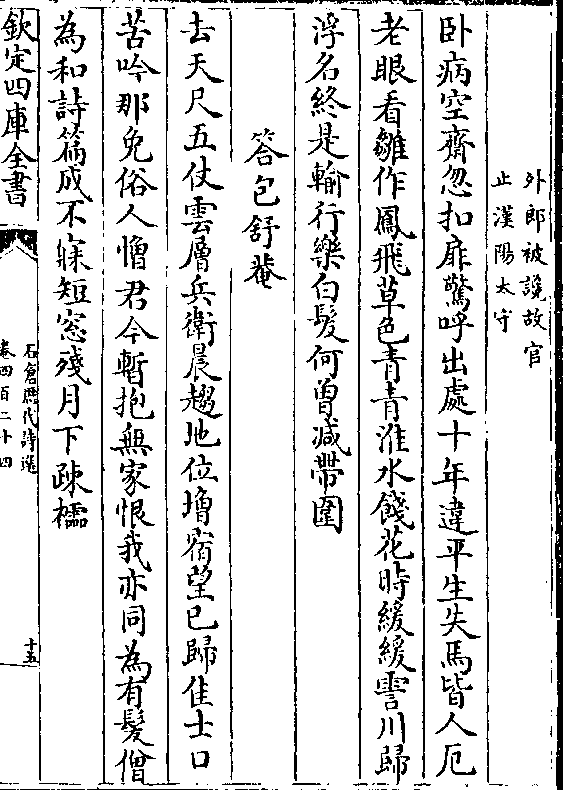 外郎被讒故官
止漢陽太守
卧病空齋忽扣扉驚呼出處十年違平生失馬皆人厄
老眼看雛作鳳飛草色青青淮水餞花時緩緩霅川歸
浮名終是輸行樂白髮何曽减帶圍
答包舒菴
去天尺五仗雲層兵衛晨趨地位増宿望已歸佳士口
苦吟那免俗人憎君今暫抱無家恨我亦同為有髮僧
為和詩篇成不寐短窓殘月下疎櫺
欽定四庫全書
石倉歴代詩選
卷四百二十四
十五